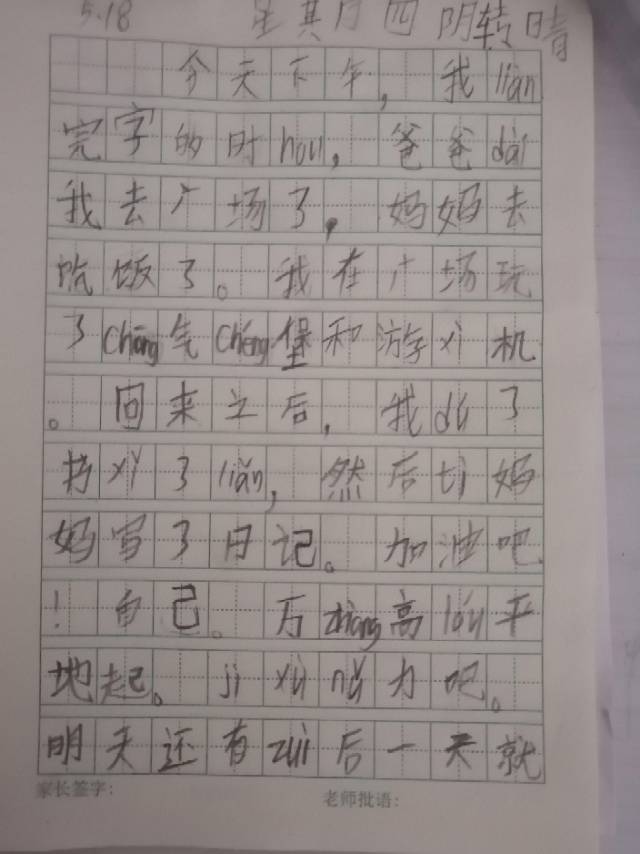 5.18 星其月四 阴转晴
今天下午,我liàn
完字的时hou,爸爸dài
我去广场了,妈妈去
吃饭了。我在广场玩
了Chōng气Chéng堡和游xì机
。回来之后,我dú了
书xǐ了liǎn,然后tì妈
妈写了日记。加油吧
!自己。万zhàng高lóu平
地起。jì xù nǔ力吧。
明天还有zuì后一天就
家长签字: 老师批语: